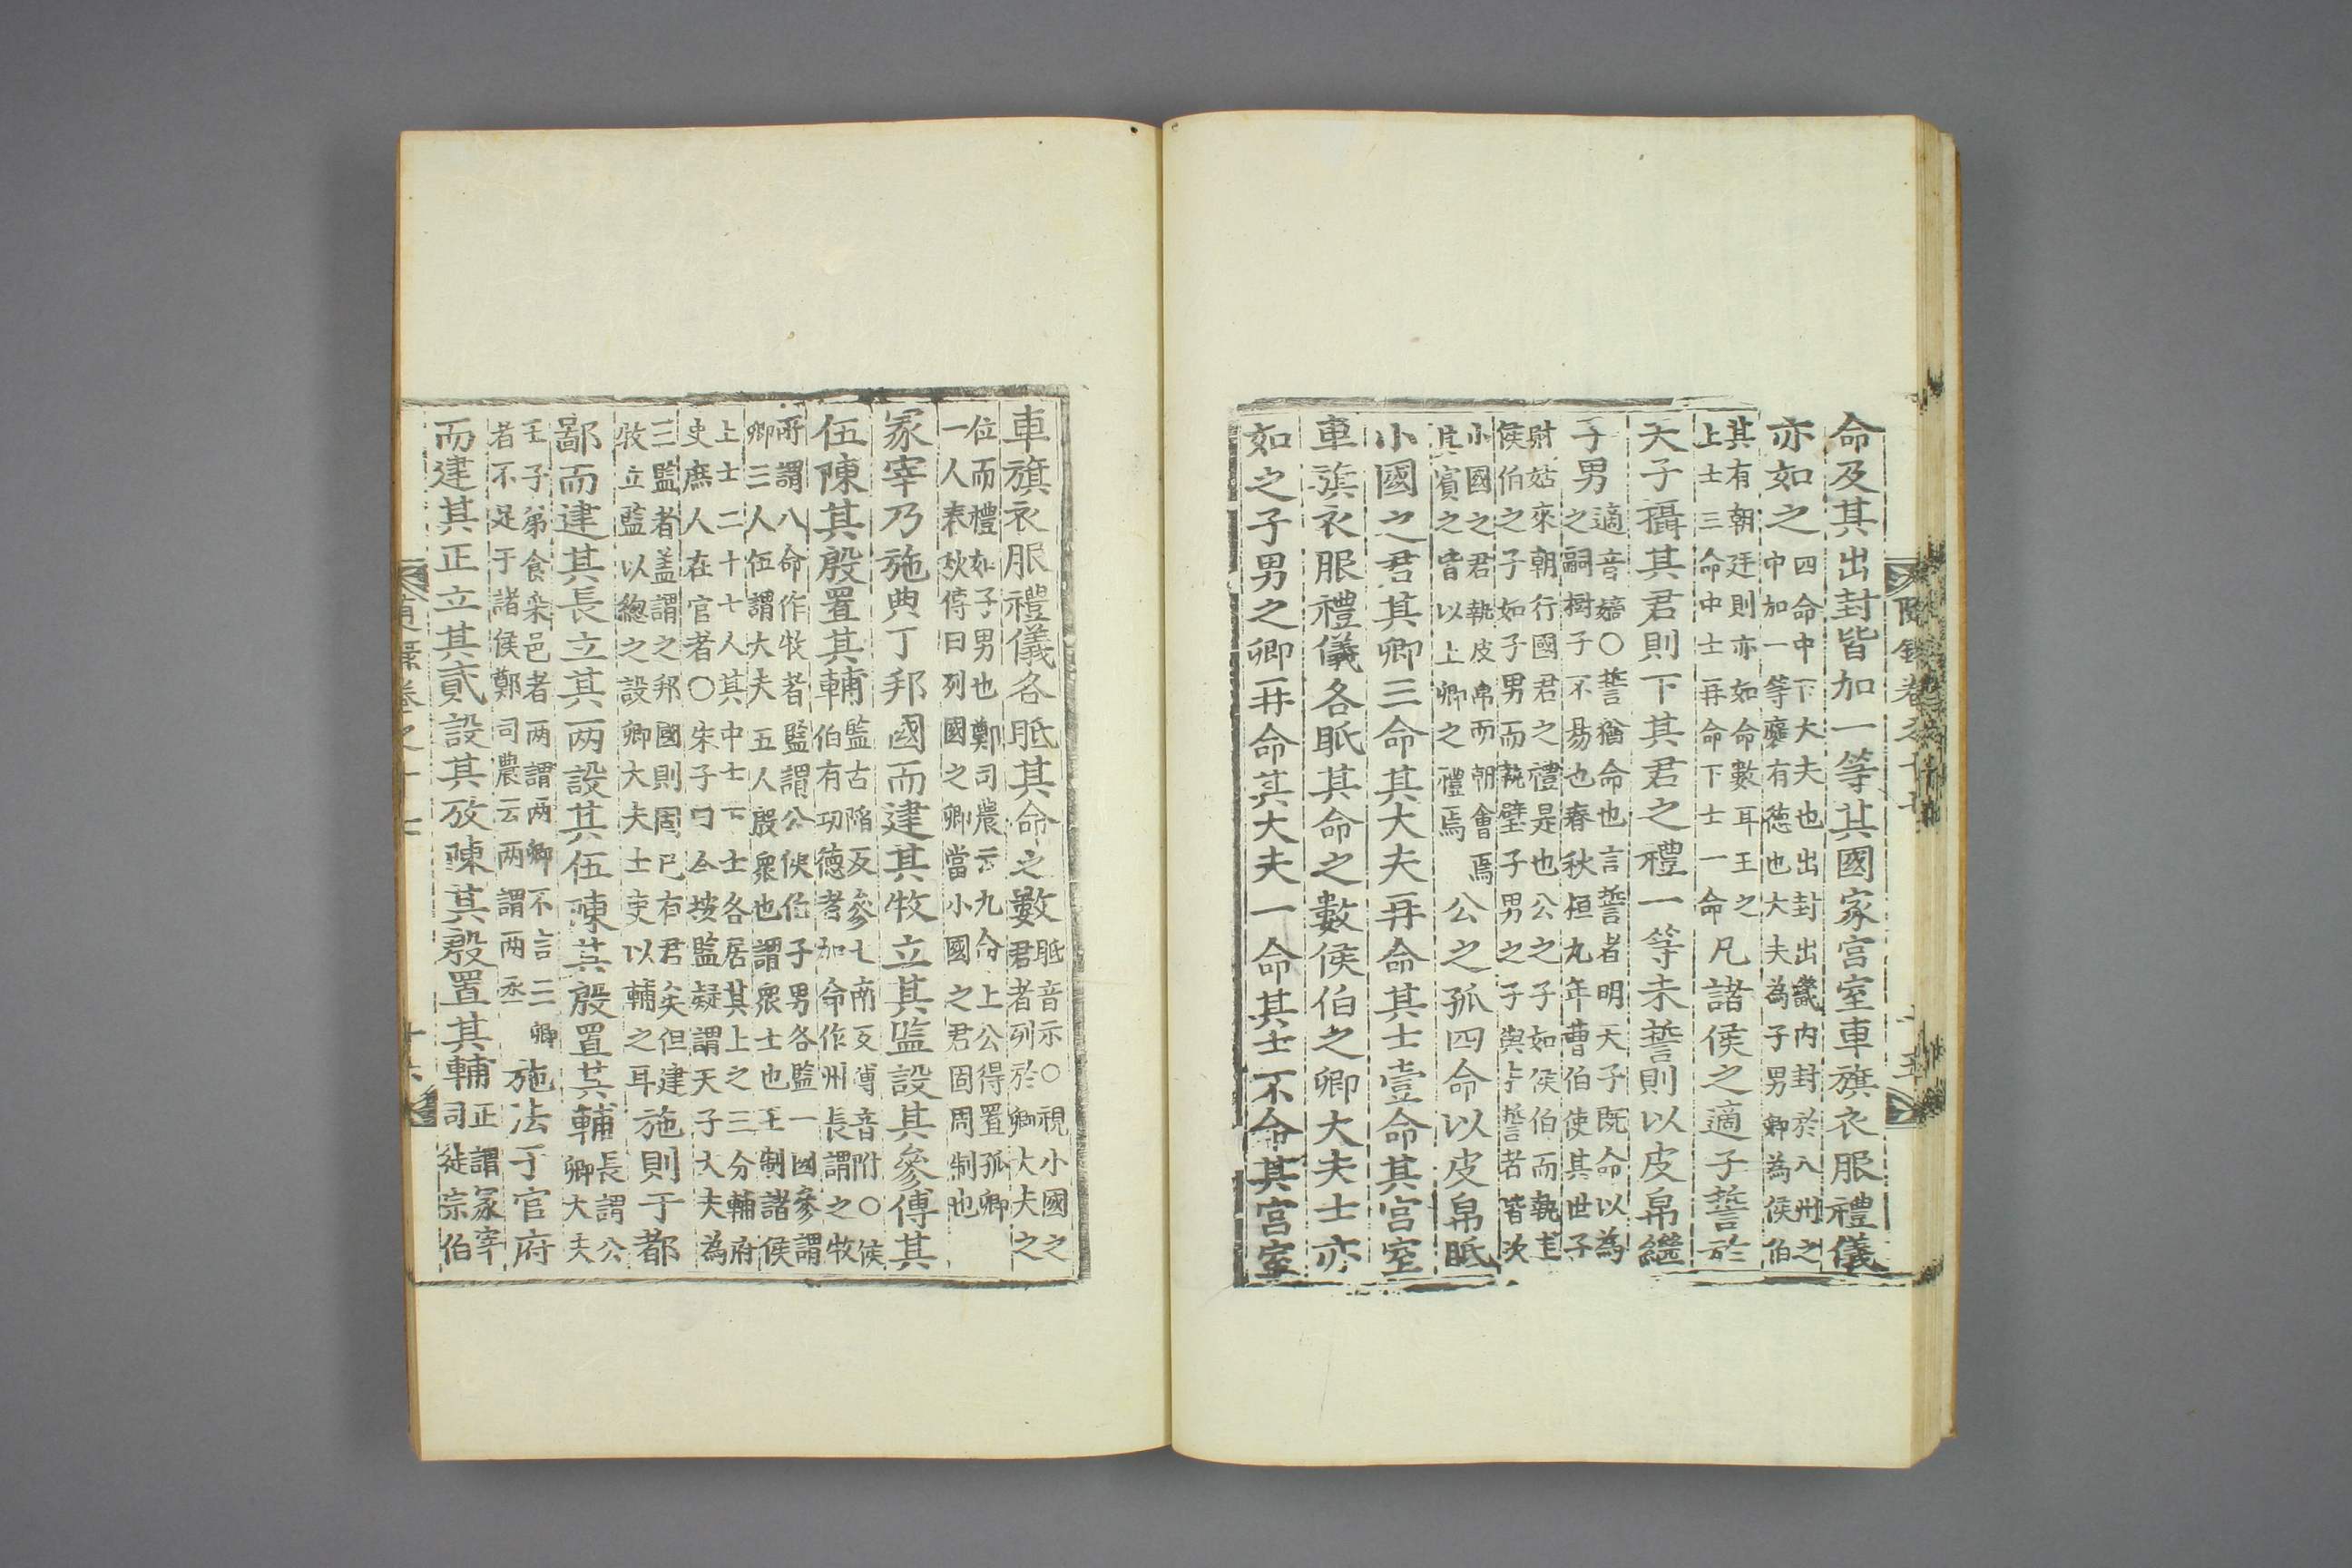 命及其出封皆加一等其國家宮室車旗衣服禮儀
亦如之四命中下大夫也出封出畿内封於八州之
中加一等襃有德也大夫為子男卿為侯伯
其有朝廷則亦如命數耳王之
上士三命中士再命下士一命凡諸侯之適子誓於
天子攝其君則下其君之禮一等未誓則以皮帛繼
子男適音嫡○誓猶命也言誓者明天子既命以為
之嗣樹子不易也春秋桓九年曹伯使其世子
射姑來朝行國君之禮是也公之子如侯伯而執圭
侯伯之子如子男而執璧子男之子與未誓者皆次
小國之君執皮帛而朝會焉
其賓之皆以上卿之禮焉公之孤四命以皮帛眡
小國之君其卿三命其大夫再命其士壹命其宮室
車旗衣服禮儀各眡其命之數侯伯之卿大夫士亦
如之子男之卿再命其大夫一命其士不命其宮室
車旗衣服禮儀各眡其命之數眡音示○視小國之
君者列於卿大夫之
位而禮如子男也鄭司農云九命上公得置孤卿
一人春秋傳曰列國之卿當小國之君固周制也
冢宰乃施典丁邦國而建其牧立其監設其參傅其
伍陳其殷置其輔監古陷反參七南反傅音附○侯
伯有功德者加命作州長謂之牧
所謂八命作牧者監謂公侯伯子男各監一國參謂
卿三人伍謂大夫五人殷衆也謂衆士也王制諸侯
上士二十七人其中士下士各居其上之三分輔府
史庶人在官者○朱子曰今按監疑謂天子大夫為
三監者盖謂之邦國則固已有君矣但建
牧立監以緫之設卿大夫士吏以輔之耳施則于都
鄙而建其長立其两設其伍陳其殷置其輔長謂公
卿大夫
王子弟食采邑者两謂两卿不言三卿
者不足于諸侯鄭司農云两謂两丞施法于官府
而建其正立其貳設其攷陳其殷置其輔正謂冢宰
司徒宗伯